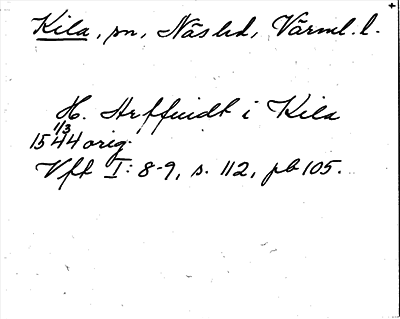 Kila, sn, Näs hd, Värml. l.
H. Arffuidt i Kila
1/3
1544 orig.
Vft I: 8-9, s. 112, pb 105.